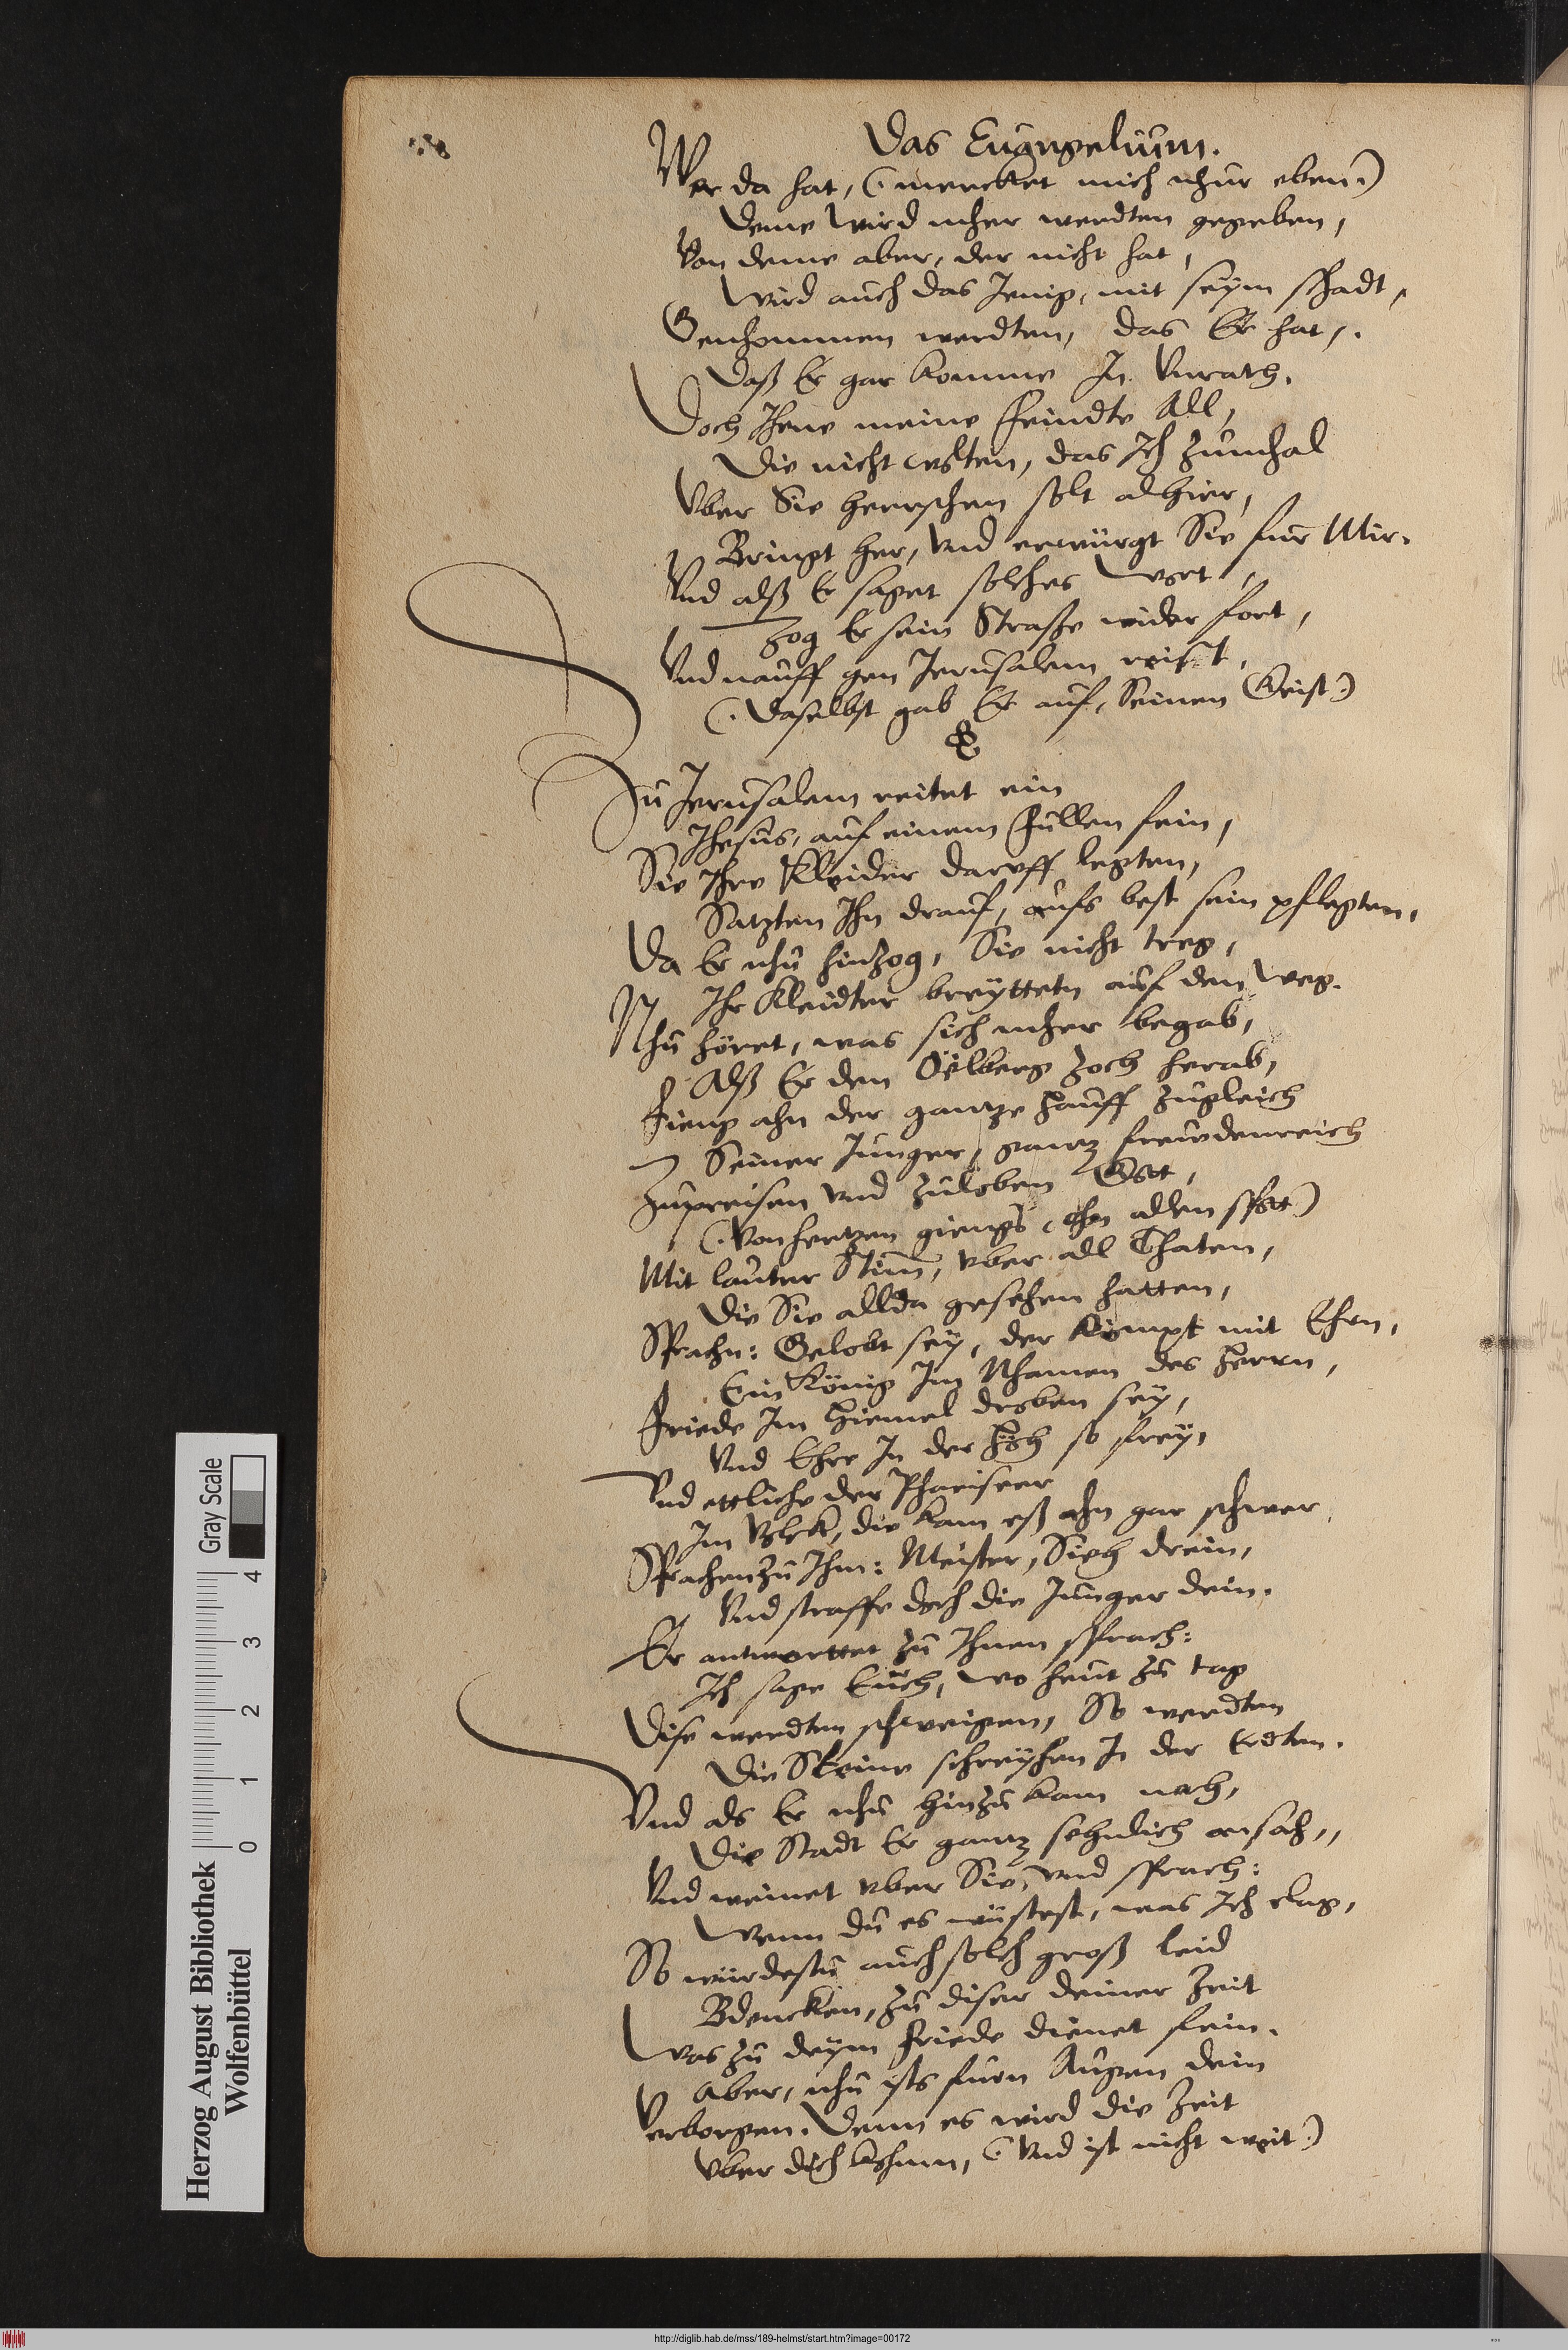 Das Euangelium.
Wer da hat, (. mercket mich nhur eben.)
Deme wird mher werdten gegeben,
Von deme aber, der nicht hat,
Wird auch das Jenig, mit seym schadt,
Genhommen werdten, das Er hat,.
Daß Er gar komme Jn Vnrath.
Doch Jhene meine Feindte All,
Die nicht wolten, das Jch zumhal
Vber Sie herrschen solt alhier,
Bringt her, Vnd erwürgt Sie fur Mir.
Vnd alß Er saget solches wort,
Zog Er sein Straße wider fort,
Vnd nauff gen Jerusalem reist,
(. Daselbst gab Er auf, Seinen Geist.)
Zu Jerusalem reitet ein
Jhesus, auf einem Füllen fein,
Sie Jhre Kleider daruff legten,
Satzten Jhn drauf, aufs best sein pflegten,
Da Er nhu hinzog, Sie nicht treg,
Jhr Kleidter breytteten auf den Weg.
Nhu höret, was sich mher begab,
Alß Er den Öelberg zoch herab,
Fieng ahn der gantze Hauff zugleich
Seiner Junger, gantz freudenreich
Zupreisen vnd zuloben Gott,
(. Von hertzen giengs, ohn allen spott)
Mit lauter Stim, vber all Thaten,
Die Sie allda gesehen hatten,
Sprachn: Gelobt sey, der kompt mit Ehrn,
Ein König Jm Nhamen des Herrn,
Friede Jm Hiemel droben sey,
Vnd Ehre Jn der Höh so frey,
Vnd ettliche der Phariseer
Jm Volck, die kam eß ahn gar schwer,
Sprachen zu Jhm: Meister, Sieh drein,
Vnd straffe doch die Junger dein.
Er antworttet zu Jhnen sprach:
Jch sage Euch, wo heut zu tag
Dise werdten schweigen, So werdten
Die Steine schreyhen Jn der Erdten.
Vnd als Er nhu hinzu kam nach,
Die Stadt Er gantz sehnlich ansah,
Vnd weinet vber Sie, vnd sprach:
Wenn du es wüstest, was Jch clag,
So würdestu auch solch groß leid
Bdencken, zu diser deiner Zeit
Was zu deym Friede dienet fein.
Aber, nhu ists furn Augen dein
Verborgen. Denn es wird die Zeit
Vber dich kohmn, (. Vnd ist nicht weit.)
Herzog August Bibliothek
Wolfenbüttel
0 1 2 3 4
Gray Scale
http://diglib.hab.de/mss/189-helmst/start.htm?image=00172